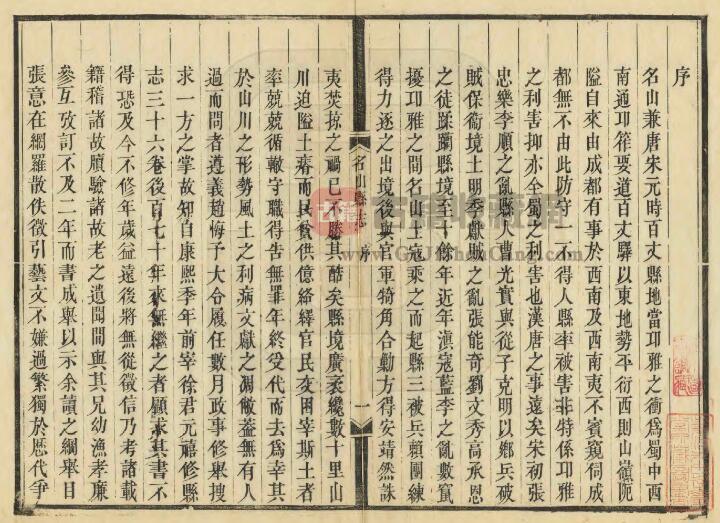 序
名山兼唐宋元時百丈縣地當邛雅之衝爲蜀中西
南通邛筰要道百丈驛以東地勢平衍西則山嶺阨
隘自來由成都有事於西南及西南夷不賓窺伺成
都無不由此防守一不得人縣率被害非特係邛雅
之利害抑亦全蜀之利害也漢唐之事遠矣宋初張
忠樂李順之亂縣人曹光實與從子克明以鄉兵破
賊保衞境土明季獻賊之亂張能奇劉文秀高承恩
之徒蹂躪縣境至十餘年近年滇寇藍李之亂數竄
擾邛雅之間名山土寇乘之而起縣三被兵賴團練
得力逐之出境後與官軍犄角合勦方得安靖然誅
名山縣志
序
一
夷焚掠之禍已不勝其酷矣縣境廣袤纔數十里山
川迫隘土瘠而民貧供億絡繹官民交困宰斯土者
率兢兢循轍守職得告無罪年終受代而去爲幸其
於山川之形勢風土之利病文獻之凋敝蓋無有人
過而問者遵義趙悔予大令履任數月政事修舉搜
求一方之掌故知自康熙季年前宰徐君元禧修縣
志三十六卷後百七十年來無繼之者顧求其書不
得恐及今不修年歲益遠後將無從徵信乃考諸載
籍稽諸故牘驗諸故老之遺聞與其兄幼漁孝廉
參互攷訂不及二年而書成舉以示余讀之綱舉目
張意在網羅散佚徵引藝文不嫌過繁獨於歷代爭